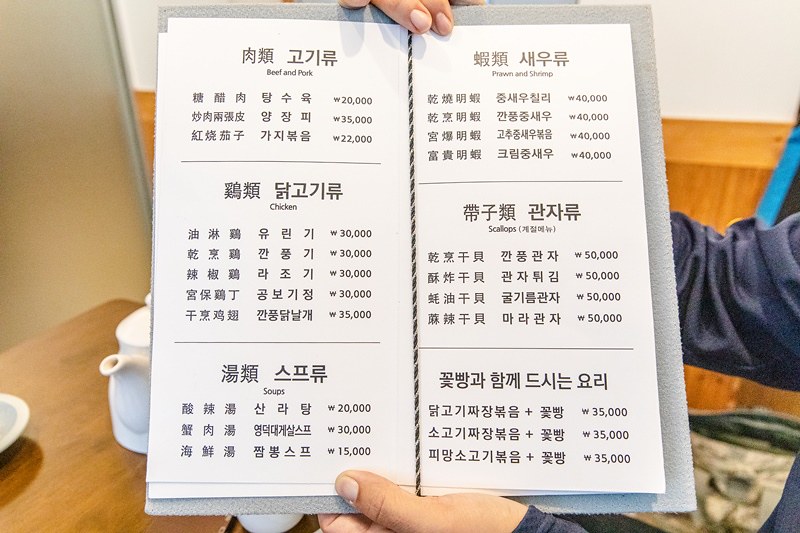 肉類 고기류
Beef and Pork
糖醋肉 탕수육 ₩20,000
炒肉兩張皮 양장피 ₩35,000
紅烧茄子 가지볶음 ₩22,000
鷄類 닭고기류
Chicken
油淋鷄 유린기 ₩30,000
乾烹鷄 깐풍기 ₩30,000
辣椒鷄 라조기 ₩30,000
宮保鷄丁 공보기정 ₩30,000
干烹鸡翅 깐풍닭날개 ₩35,000
湯類 스프류
Soups
酸辣湯 산라탕 ₩20,000
蟹肉湯 영덕대게살스프 ₩30,000
海鮮湯 짬뽕스프 ₩15,000
蝦類 새우류
Prawn and Shrimp
乾燒明蝦 중새우칠리 ₩40,000
乾烹明蝦 깐풍중새우 ₩40,000
宮爆明蝦 고추중새우볶음 ₩40,000
富貴明蝦 크림중새우 ₩40,000
帶子類 관자류
Scallops (계절메뉴)
乾烹干貝 깐풍관자 ₩50,000
酥炸干貝 관자튀김 ₩50,000
蚝油干貝 굴기름관자 ₩50,000
蔴辣干貝 마라관자 ₩50,000
꽃빵과 함께 드시는 요리
닭고기짜장볶음 + 꽃빵 ₩35,000
소고기짜장볶음 + 꽃빵 ₩35,000
피망소고기볶음 + 꽃빵 ₩35,000